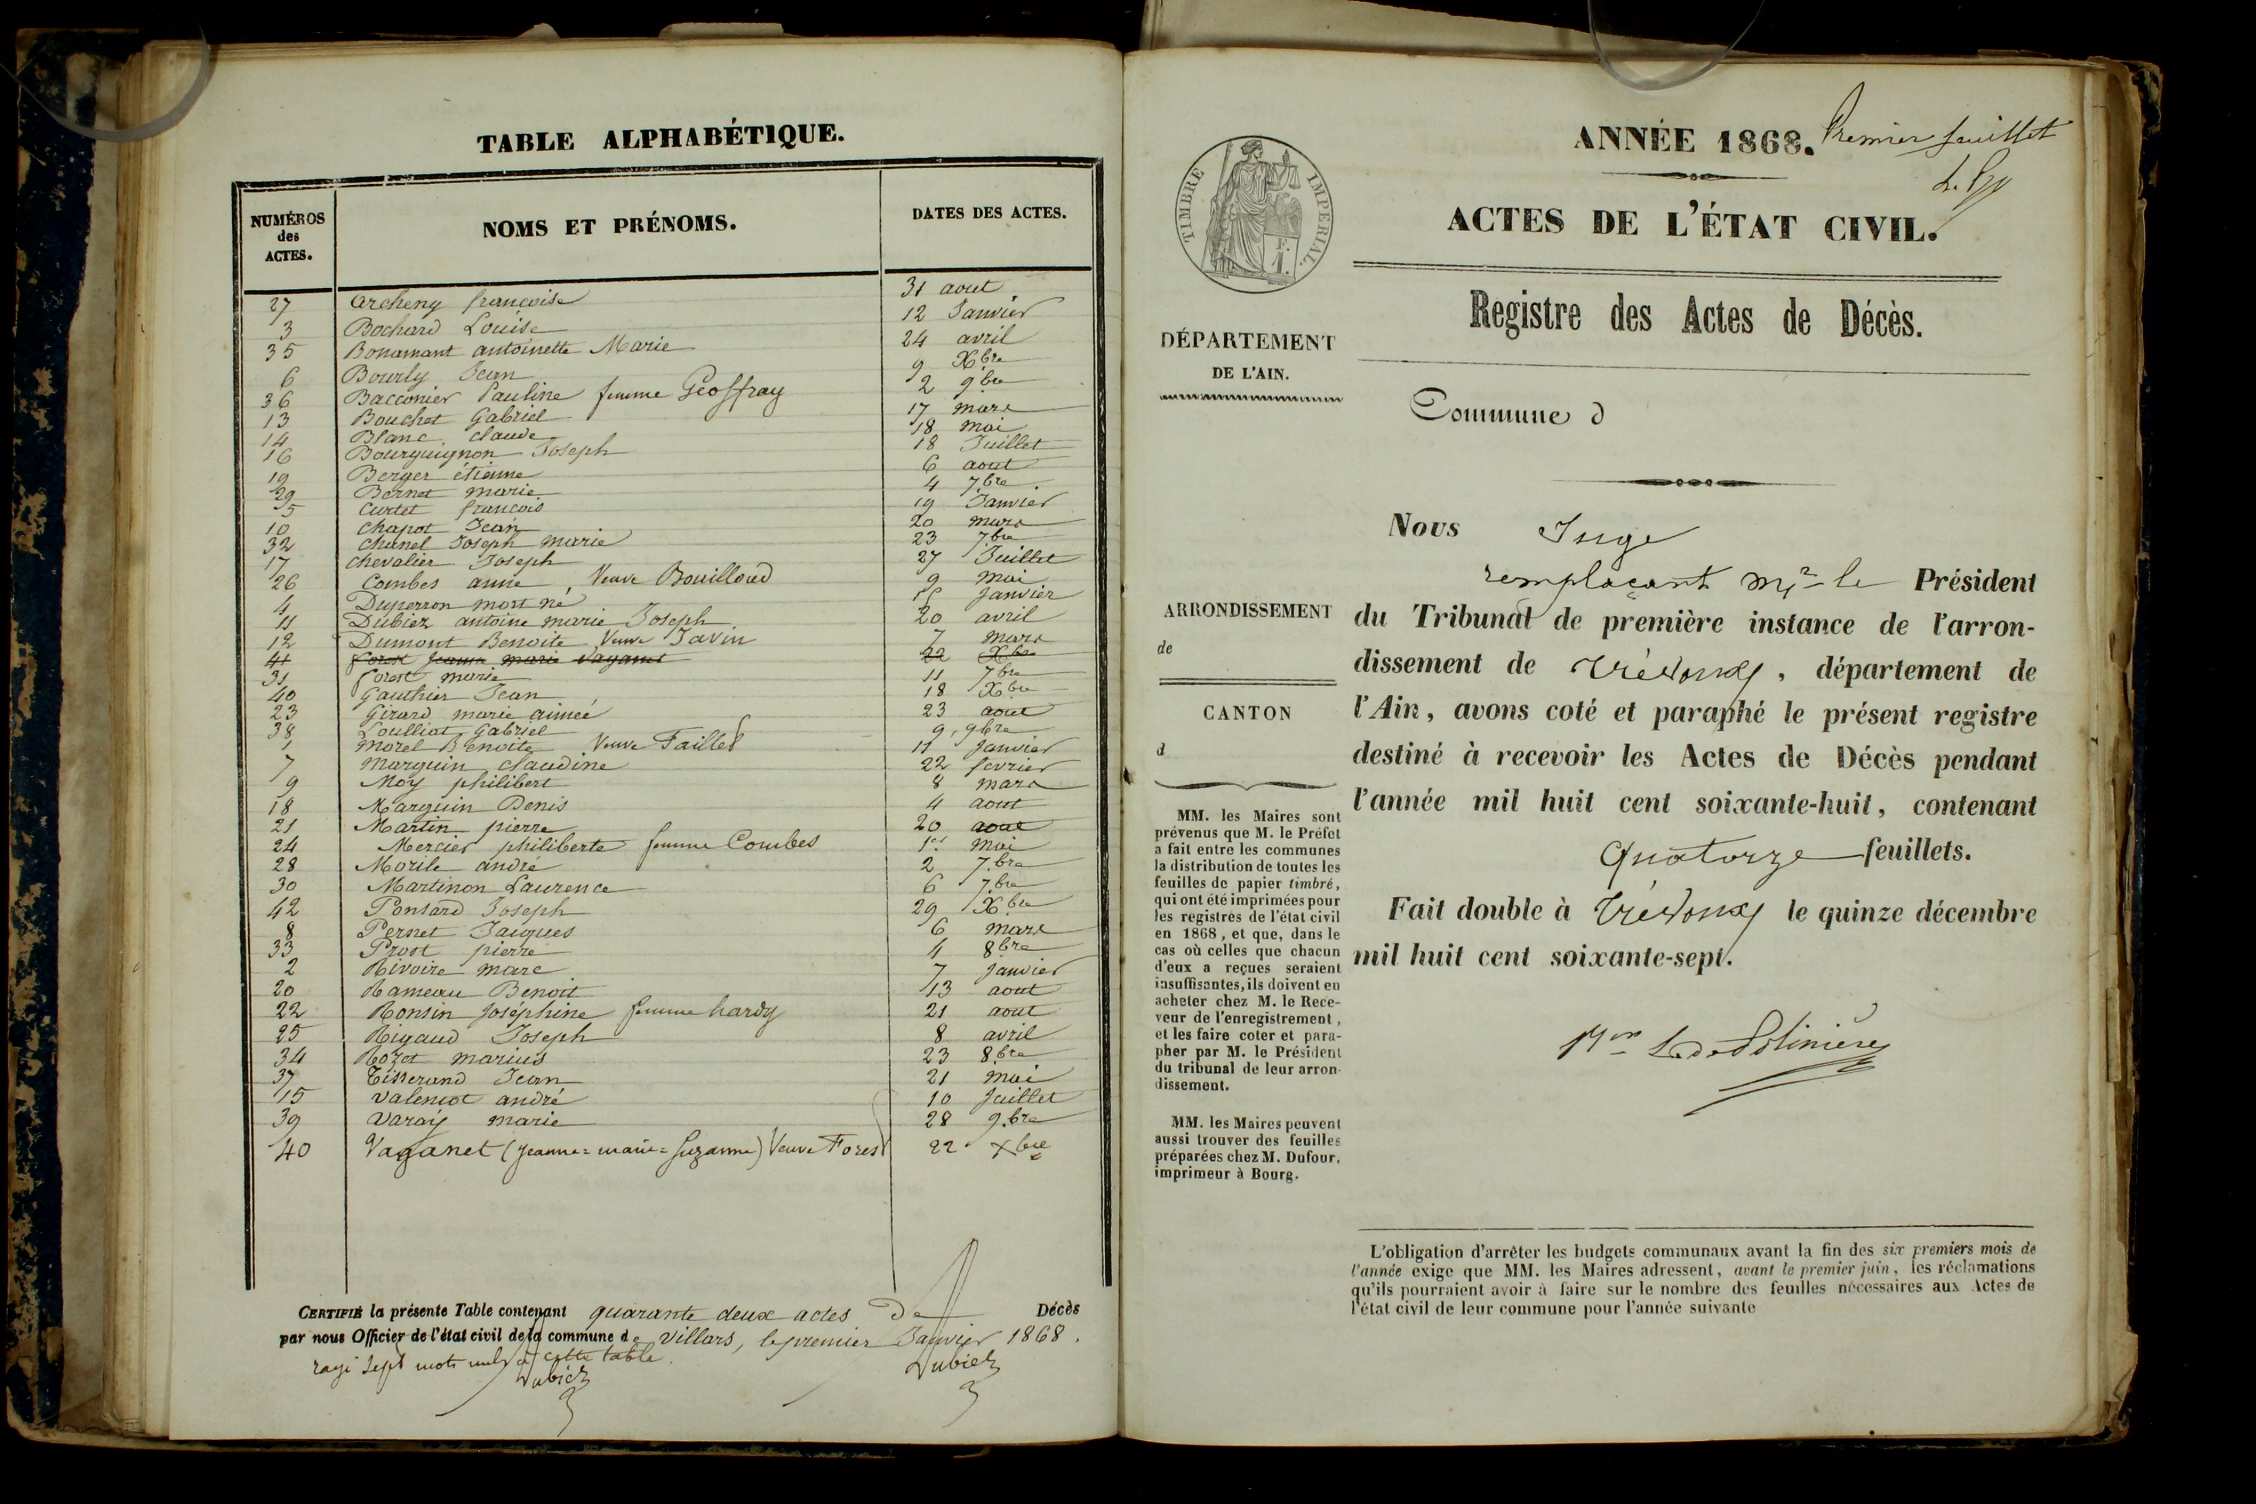 TABLE ALPHABÉTIQUE.
NUMÉROS des ACTES. NOMS ET PRÉNOMS. DATES DES ACTES.
27 Archeny françoise 31 aout
3 Bochard Louise 12 Janvier
35 Bonamant antoinette Marie 24 avril
6 Bourly Jean 9 Xbre
36 Bacconier Pauline femme Geoffray 2 9bre
13 Bouchet Gabriel 17 mars
14 Blanc claude 18 mai
16 Bourguignon Joseph 18 Juillet
19 Berger étienne 6 aout
29 Bernet marie 4 7bre
5 Curtet françois 19 Janvier
10 Chapot Jean 20 mars
32 Chanel Joseph marie 23 7bre
17 Chevalier Joseph 27 Juillet
26 Combes anne Veuve Bouilloud 9 mai
4 Duperron mort né Janvier
11 Dubiez antoine marie Joseph 20 avril
12 Dumont Benoite Veuve Javin 7 mars
41 forest Jeanne marie Vaganet 22 Xbre
31 forest marie 11 7bre
40 Gauthier Jean 18 Xbre
23 Girard marie aimeé 23 aout
38 Loulliat Gabriel 9 9bre
1 Morel Benoite Veuve Tailler 11 Janvier
7 Marguin claudine 22 fevrier
9 Moy philibert 8 mars
18 Marguin Denis 4 aout
21 Martin pierre 20 aout
24 Mercier philiberte femme Combes 1er mai
28 Morile andré 2 7bre
30 Martinon Laurence 6 7bre
42 Ponsard Joseph 29 Xbre
8 Pernet Jacques 6 mars
33 Prost pierre 1 8bre
2 Rivoire marc 7 Janvier
20 Rameau Benoit 13 aout
22 Ronsin Joséphine femme hardy 21 aout
25 Rigaud Joseph 8 avril
34 Rozet marius 23 8bre
37 Tisserand Jean 21 mai
15 Valencot andré 10 Juillet
39 Varay marie 28 9bre
40 Vaganet (Jeanne=marie=Suzanne) Veuve Forest 22 Xbre
CERTIFIÉ la présente Table contenant quarante deux actes De Décès
par nous Officier de l'état civil de la commune de Villars, le premier Janvier 1868.
rayé sept mots nuls à cette table.
Dubiez
Dubiez
ANNÉE 1868. Premier feuillet
TIMBRE IMPERIAL.
F. 1.
ACTES DE L'ÉTAT CIVIL.
Registre des Actes de Décès.
DÉPARTEMENT
DE L'AIN.
Commune d
Nous Juge
remplaçant Mr le Président
ARRONDISSEMENT
de
CANTON
d
du Tribunal de première instance de l'arron-
dissement de Trévoux, département de
l'Ain, avons coté et paraphé le présent registre
destiné à recevoir les Actes de Décès pendant
l'année mil huit cent soixante-huit, contenant
quatorze feuillets.
Fait double à Trévoux le quinze décembre
mil huit cent soixante-sept.
MM. les Maires sont
prévenus que M. le Préfet
a fait entre les communes
la distribution de toutes les
feuilles de papier timbré,
qui ont été imprimées pour
les registres de l'état civil
en 1868, et que, dans le
cas où celles que chacun
d'eux a reçues seraient
insuffisantes, ils doivent en
acheter chez M. le Rece-
veur de l'enregistrement,
et les faire coter et para-
pher par M. le Président
du tribunal de leur arron-
dissement.
MM. les Maires peuvent
aussi trouver des feuilles
préparées chez M. Dufour,
imprimeur à Bourg.
L'obligation d'arrêter les budgets communaux avant la fin des six premiers mois de
l'année exige que MM. les Maires adressent, avant le premier juin, les réclamations
qu'ils pourraient avoir à faire sur le nombre des feuilles nécessaires aux Actes de
l'état civil de leur commune pour l'année suivante